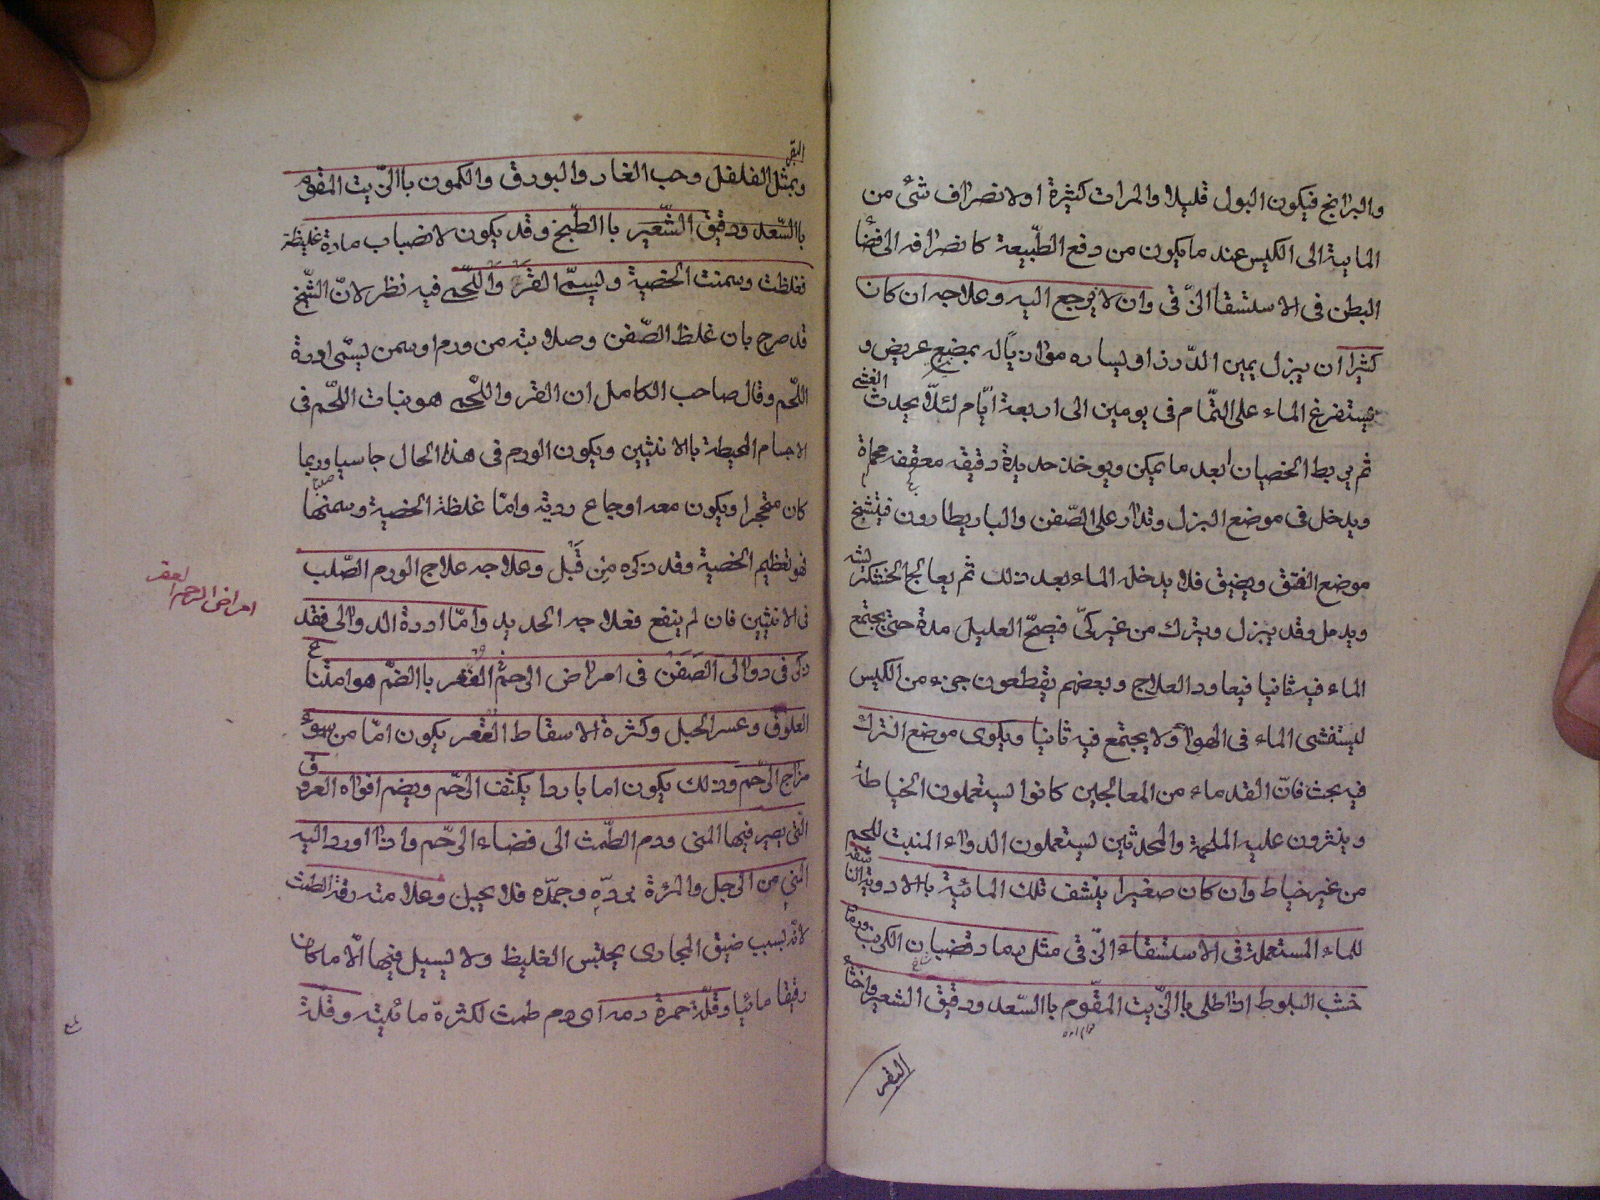 والبرانج فيكون البول قليلا والمرات كثيرة او لانصراف شئ من
المائية الى الكيس عند ما يكون من دفع الطّبيعة كانصرافه الى فضا
البطن فى الاستسقا الزّقى وان لا يرجع اليه وعلاجه ان كان
كثيرا ان يبزل يمين الدّرز او يساره موازيا له بمبضع عريض و
يستفرغ الماء على التّمام فى يومين الى اربعة ايّام لئلّا يحدث الغشى
ثم يربط الخصيان ابعد ما يمكن ويوخذ حديدة دقيقه معقفه محماة
ويدخل فى موضع البزل وتدار على الصّفن والباريطارون فيتشنج
موضع الفتق ويضيق فلا يدخله الماء بعد ذلك ثم يعالج الخشكريشه
ويدمل وقد يبزل ويترك من غير كىّ فيصحّ العليل مدة حتى يجتمع
الماء فيه ثانيا فيعاود العلاج وبعضهم يقطعون جزء من الكيس
ليستفشى الماء فى الهوا ولا يجتمع فيه ثانيا ويكوى موضع الترك
فيه بحث فانّ القدماء من المعالجين كانوا يستعملون الخياطة
وينثرون عليه الملحمة والمحدثين يستعملون الدواء المنبت للحم
من غير خياط وان كان صغيرا ينشف تلك المائية بالادوية
للماء المستعملة فى الاستسقاء الزّقى مثل رماد قضبان الكرنب ورماد
خشب البلوط اذا طلى باالزّيت المقوم باالسّعد ودقيق الشعير واخثا
البقر
البقر
وبمثل الفلفل وحب الغار والبورق والكمون باالزّيت المقوم
باالسّعد ودقيق الشّعير باالطّبخ وقد يكون لانصباب مادة غليظة
فغلظت وسمنت الخصية ويسمّى القرو اللّحمى فيه نظر لانّ الشّيخ
قد صرح بان غلظ الصّفن وصلابته من ورم او سمن يسمّى ادرة
اللّحم وقال صاحب الكامل ان القرو اللّحمى هو نبات اللّحم فى
الاجسام المحيطة باالانثيين ويكون الورم فى هذا الحال جاسيا وربما
كان متحجرا ويكون معه اوجاع ردية وامّا غلظة الخصية وسمنها
فهو تعظيم الخصية وقد ذكره مِن قَبل وعلاجه علاج الورم الصّلب
فى الانثيين فان لم ينفع فعلاجه الحديد وامّا ادرة الدوالى فقد
ذكر فى دوالى الصَفَن فى امراض الرحم العُقر باالضّم هو امتناع
العلوق وعسر الحبل وكثرة الاسقاط العُقر يكون امّا من سوء
مزاج الرّحم وذلك يكون اما باردا يكثف الرّحم ويضم افواه العروق
الّتى يصير فيها المنى ودم الطّمث الى فضاء الرّحم واذا اورد اليه
المنى من الرّجل والمرءة برّده وجمّده فلا يحبل وعلامته رقة الطمث
لانّه بسبب ضيق المجارى يحتبس الغليظ ولا يسيل فيها الّا ما كان
رقيقا مائيا وقلّة حمرة دمه اى دم طمث لكثرة مائيته وقلّة
امراض الرحم العقر